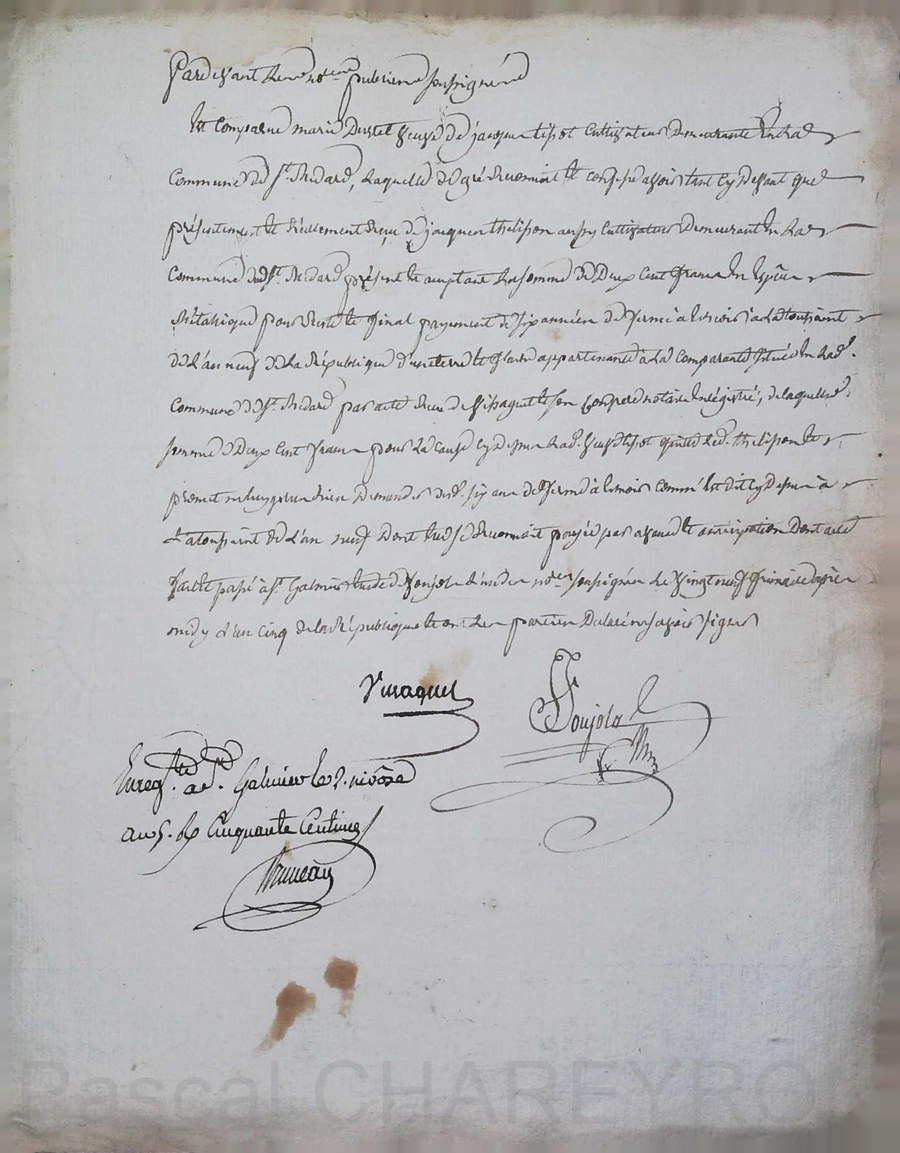 Pardevant Les notaires publics soussignés
Est Comparue marie Durtel veuve de jacques tipot Cultivateur Demeurante En La
Commune de St. Médard, Laquelle de gré Reconnoit et confesse avoir tant Cy Devant que
présentement et Réellement Reçu de jacques thelisson aussy Cultivateur Demeurant En La
Commune de St. Médard présent et acceptant La somme de Deux Cent francs En Espèce
Métalique pour Reste et final payement de six années de ferme à Echoir à La toussaint
de L'an neuf de La République d'une terre et appartenante à La Comparante située En Lad.
Commune de St. Médard par acte Reçu et son Confrere notaire Enregistré, de laquelle
somme de Deux Cent francs pour La Cause Cy Dessus Lad. veuve tipot quitte Led. thelisson et
promet ne luy plus Rien Demander desd. six ans de ferme à Echoir comme Est dit Cy dessus à
La toussaint de L'an neuf Dont Elle se Reconnoit payée par avance et anticipation Dont acte
fait et passé à St. Galmier Etude de Voujole L'un des notes. soussignés Le vingt neuf frimaire après
midy L'an cinq de la République et ont Les parties Déclaré ne savoir signer
Voujole
Enregtré. à St. Galmier le 2. nivôse
an 5. Rç Cinquante Centimes
Bruneau
Pascal CHAREYRO